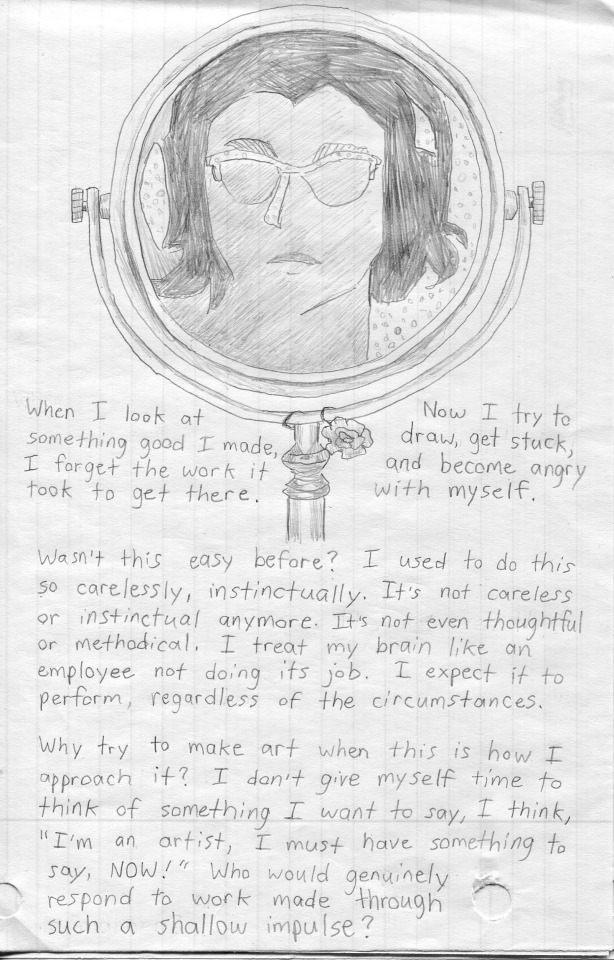 When I look at
something good I made,
I forget the work it
took to get there.
Now I try to
draw, get stuck,
and become angry
with myself.
Wasn't this easy before? I used to do this
so carelessly, instinctually. It's not careless
or instinctual anymore. It's not even thoughtful
or methodical. I treat my brain like an
employee not doing its job. I expect it to
perform, regardless of the circumstances.
Why try to make art when this is how I
approach it? I don't give myself time to
think of something I want to say, I think,
"I'm an artist, I must have something to
say, NOW!" Who would genuinely
respond to work made through
such a shallow impulse?